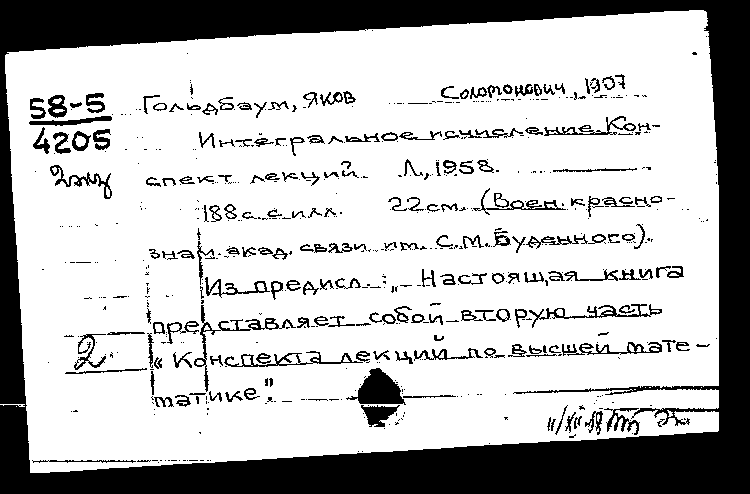 58-5 Гольдбаум, Яков Соломонович, 1907
4205 Интегральное исчисление. Кон-
2экз спект лекций. Л., 1958.
188 с. с илл. 22 см. (Воен. красно-
знам. акад. связи им. С.М. Буденного).
Из предисл.: „Настоящая книга
представляет собой вторую часть
2 «Конспекта лекций по высшей мате-
матике".